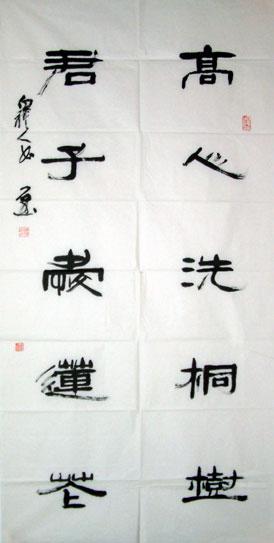 高人洗桐樹
君子愛蓮花